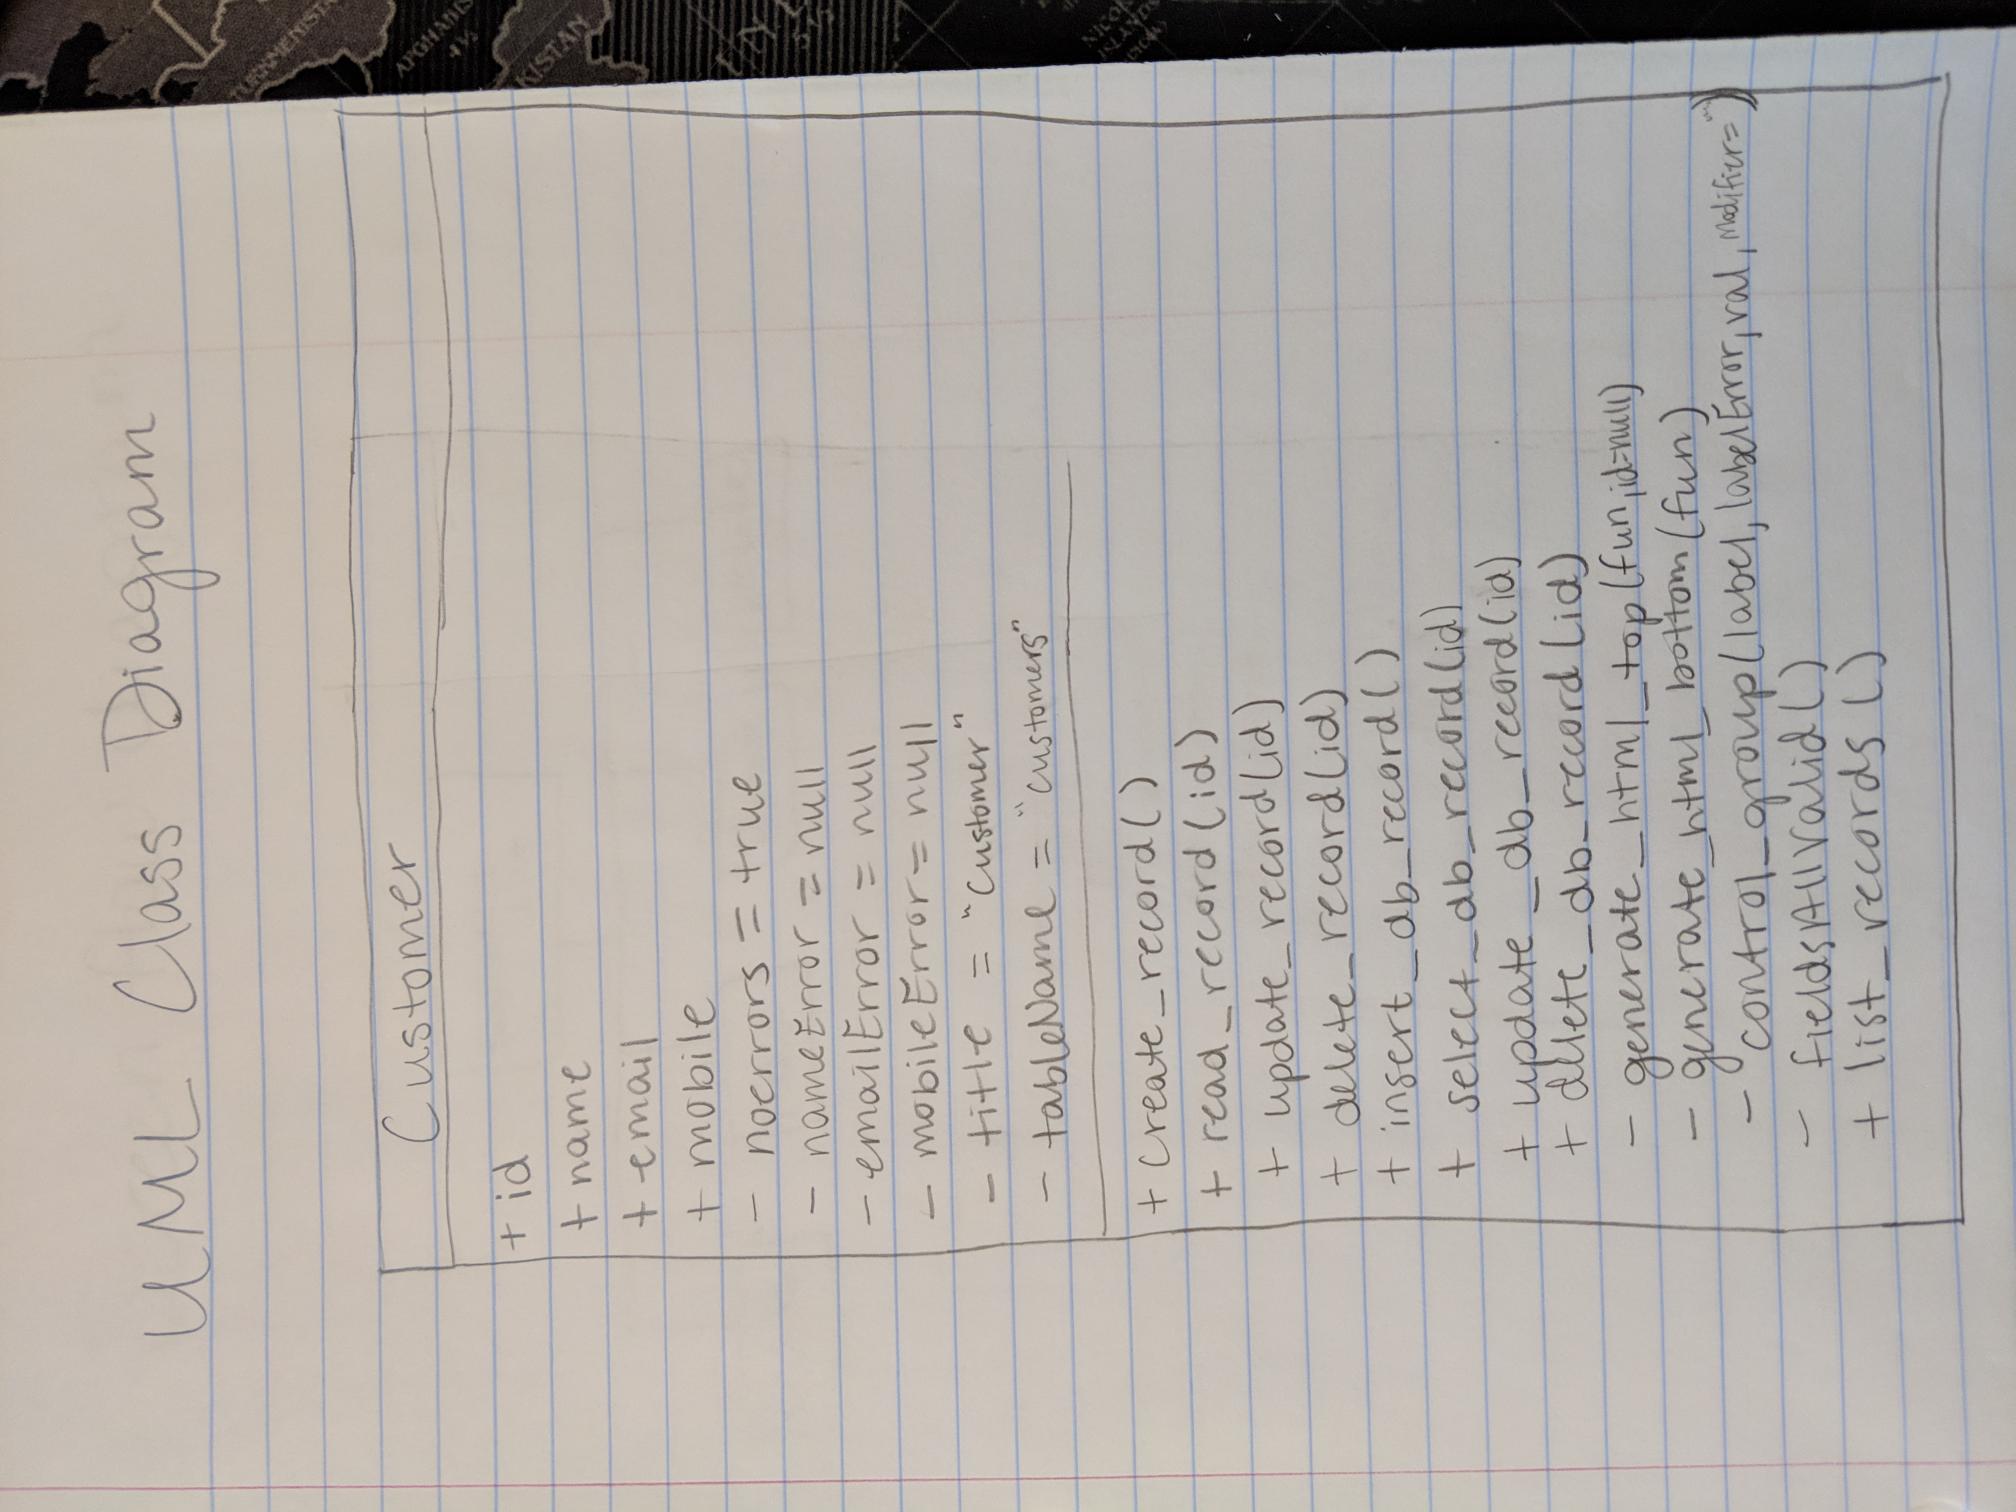 UML Class Diagram
Customer
+ id
+ name
+ email
+ mobile
- noerrors = true
- nameError = null
- emailError = null
- mobileError = null
- title = "Customer"
- tableName = "customers"
+ create_record()
+ read_record(id)
+ update_record(id)
+ delete_record(id)
+ insert_db_record()
+ select_db_record(id)
+ update_db_record(id)
+ delete_db_record(id)
- generate_html_top(fun,id=null)
- generate_html_bottom(fun)
- control_group(label, labelError, val, modifier="")
- fieldsAllValid()
+ list_records()
KISTAN